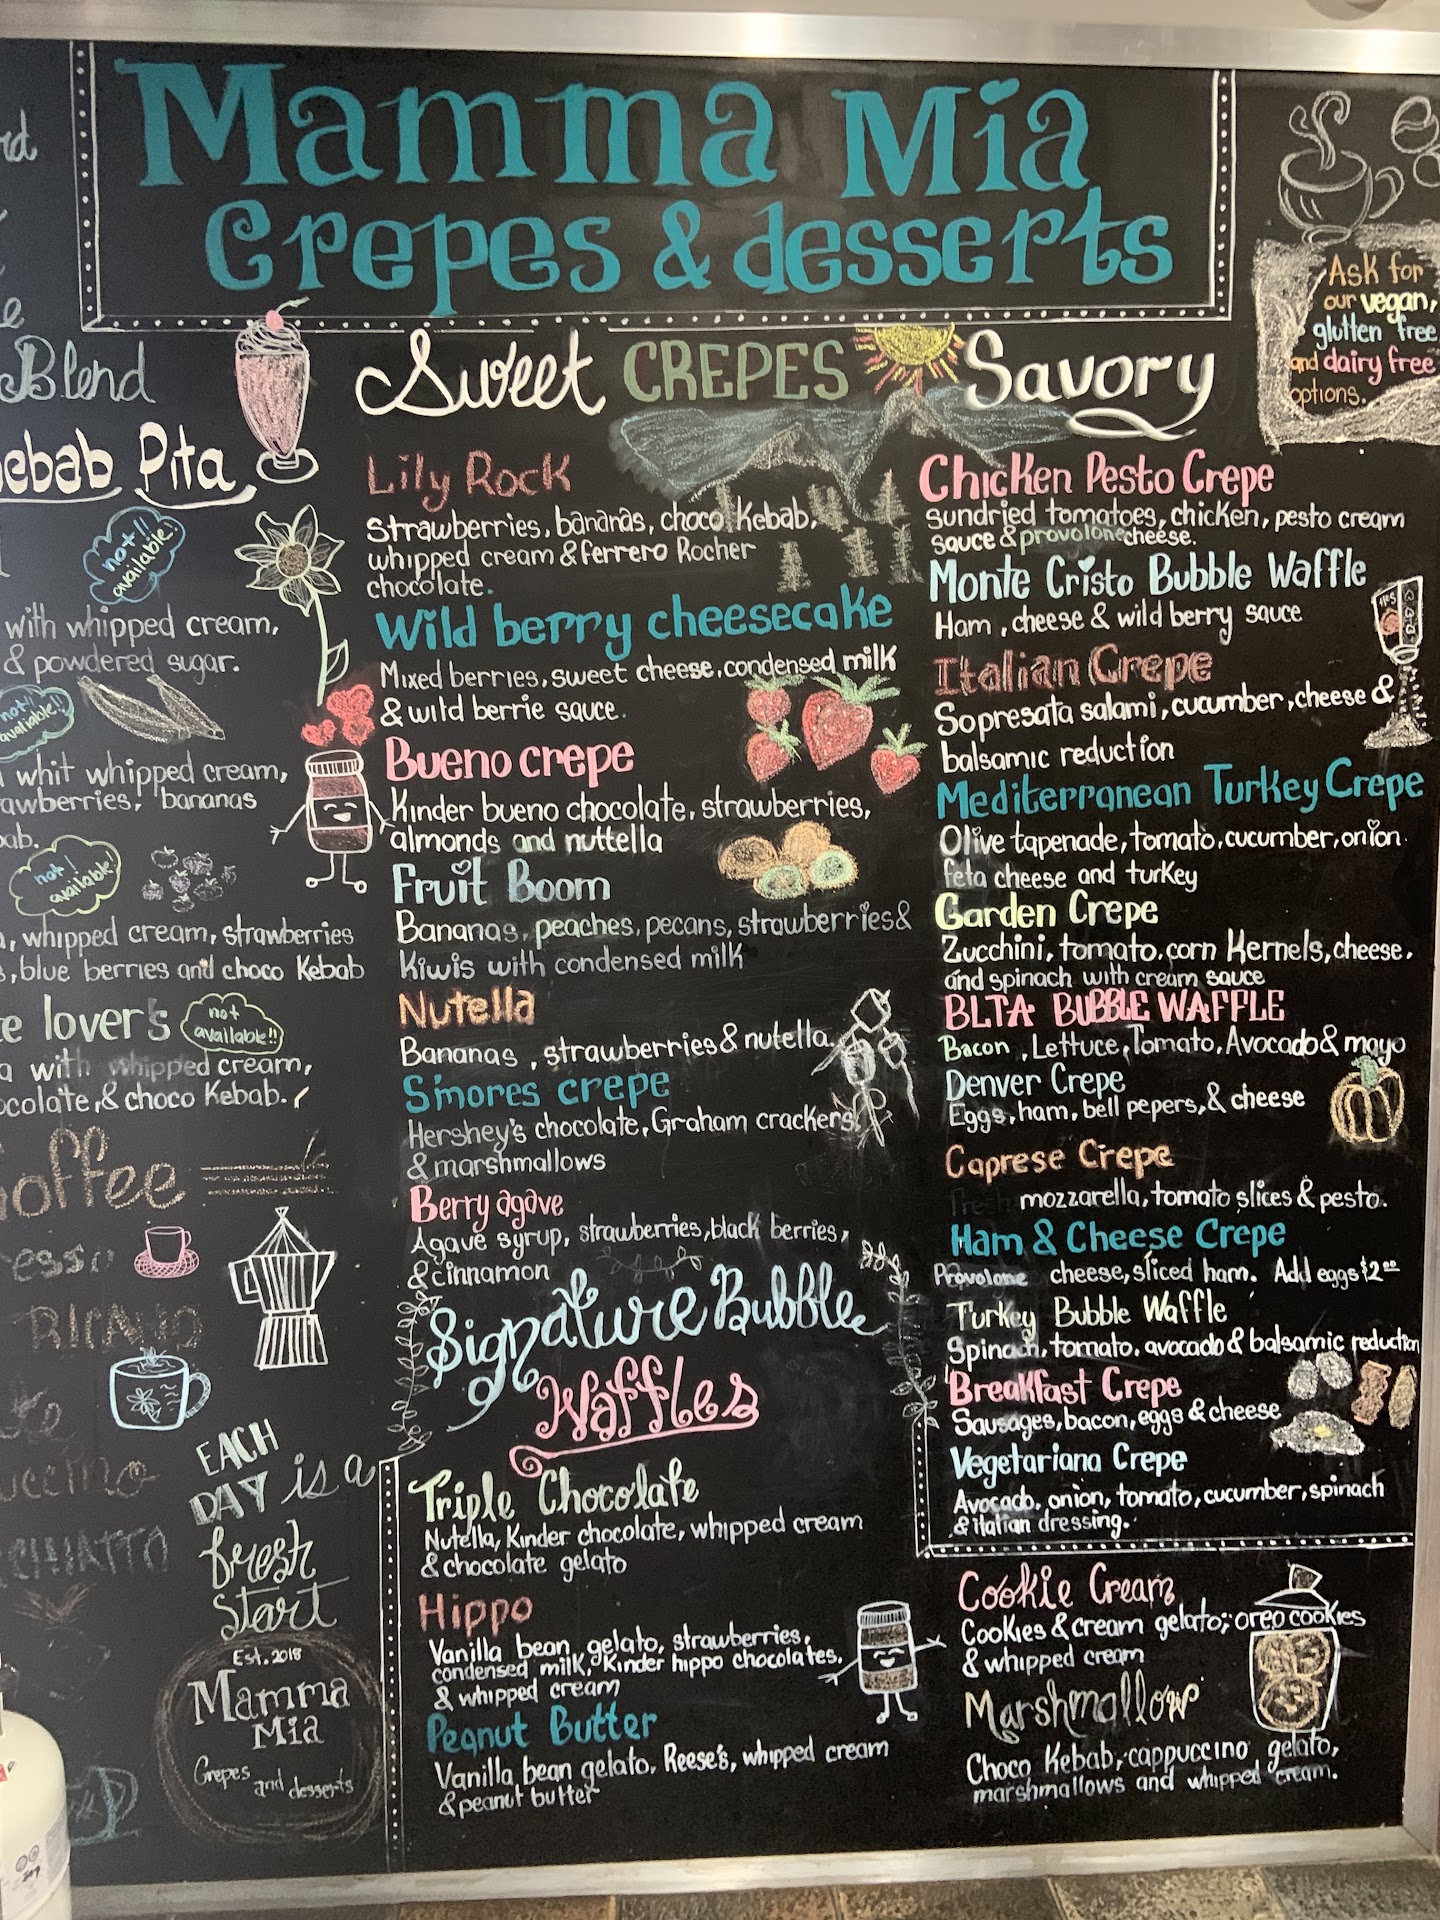 Mamma Mia
Crepes & desserts
Ask for
our vegan,
glutten free
and dairy free
options.
Blend
Pita
not!!
available!
with whipped cream,
& powdered sugar.
not!
available!!
whit whipped cream,
bananas
not!
available!
whipped cream, strawberries
blue berries and choco Kebab
lover's
not
available!!
with whipped cream,
& choco Kebab.
EACH
DAY is a
fresh
start
Est. 2018
Mamma
Mia
Crepes
and desserts
Sweet CREPES Savory
Lily Rock
Strawberries, bananas, choco Kebab,
whipped cream & ferrero Rocher
chocolate.
Wild berry cheesecake
Mixed berries, sweet cheese, condensed milk
& wild berrie sauce.
Bueno crepe
Kinder bueno chocolate, strawberries,
almonds and nuttella
Fruit Boom
Bananas, peaches, pecans, strawberries &
Kiwis with condensed milk
Nutella
Bananas, strawberries & nutella.
S'mores crepe
Hershey's chocolate, Graham crackers,
& marshmallows
Berry agave
Agave syrup, strawberries, black berries,
& cinnamon
Signature Bubble
Waffles
Triple Chocolate
Nutella, Kinder chocolate, whipped cream
& chocolate gelato
Hippo
Vanilla bean gelato, strawberries,
condensed milk, Kinder hippo chocolates,
& whipped cream
Peanut Butter
Vanilla bean gelato, Reese's, whipped cream
& peanut butter
Chicken Pesto Crepe
sundried tomatoes, chicken, pesto cream
sauce & provolone cheese.
Monte Cristo Bubble Waffle
Ham, cheese & wild berry sauce
Italian Crepe
Sopresata salami, cucumber, cheese &
balsamic reduction
Mediterranean Turkey Crepe
Olive tapenade, tomato, cucumber, onion
feta cheese and turkey
Garden Crepe
Zucchini, tomato, corn Kernels, cheese,
and spinach with cream sauce
BLTA BUBBLE WAFFLE
Bacon, Lettuce, Tomato, Avocado & mayo
Denver Crepe
Eggs, ham, bell pepers, & cheese
Caprese Crepe
fresh mozzarella, tomato slices & pesto.
Ham & Cheese Crepe
Provolone cheese, sliced ham. Add eggs $2.00
Turkey Bubble Waffle
Spinach, tomato, avocado & balsamic reduction
Breakfast Crepe
Sausages, bacon, eggs & cheese
Vegetariana Crepe
Avocado, onion, tomato, cucumber, spinach
& italian dressing.
Cookie Cream
Cookies & cream gelato, oreo cookies
& whipped cream
Marshmallow
Choco Kebab, cappuccino gelato,
marshmallows and whipped cream.